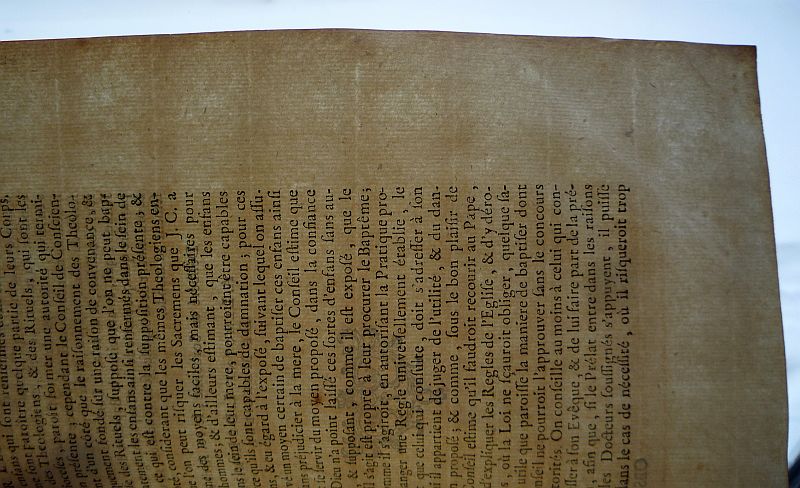 ans qui sont renfermés
ne font paroître quelque partie de leurs Corps,
Theologiens, & des Rituels, qui sont les
ées, paroît former une autorité qui termi-
ésente; cependant le Conseil de Conscien-
d'un côté que le raisonnement des Theolo-
ment fondé sur une raison de convenance, &
e les Rituels, suppose que l'on ne peut bapt
ment les enfans ainsi renfermés dans le sein de
qui est contre la supposition présente; &
té, considerant que les mêmes Theologiens en-
l'on peut risquer les Sacremens que J. C. a
me des moyens faciles, mais nécessaires pour
ommes; & d'ailleurs estimant, que les enfans
ns le sein de leur mere, pourroient être capables
ce qu'ils sont capables de damnation; pour ces
s, & eu égard à l'exposé, suivant lequel on assu-
vé un moyen certain de baptiser ces enfans ainsi
ns préjudicier à la mere, le Conseil estime que
se servir du moyen proposé, dans la confiance
Dieu n'a point laissé ces sortes d'enfans sans au-
& supposant, comme il est exposé, que le
s'agit est propre à leur procurer le Baptême;
mme il s'agiroit, en autorisant la Pratique pro-
anger une Regle universellement établie, le
ue celui qui consulte, doit s'adresser à son
il appartient de juger de l'utilité, & du dan-
n proposé; & comme, sous le bon plaisir de
Conseil estime qu'il faudroit recourir au Pape,
d'expliquer les Regles de l'Eglise, & d'y déro-
, où la Loi ne sçauroit obliger, quelque sa-
utile que paroisse la maniere de baptiser dont
nseil ne pourroit l'approuver sans le concours
torités. On conseille au moins à celui qui con-
sser à son Evêque, & de lui faire part de la pré-
, afin que, si le Prélat entre dans les raisons
les Docteurs soussignés s'appuyent, il puisse
dans le cas de nécessité, où il risqueroit trop